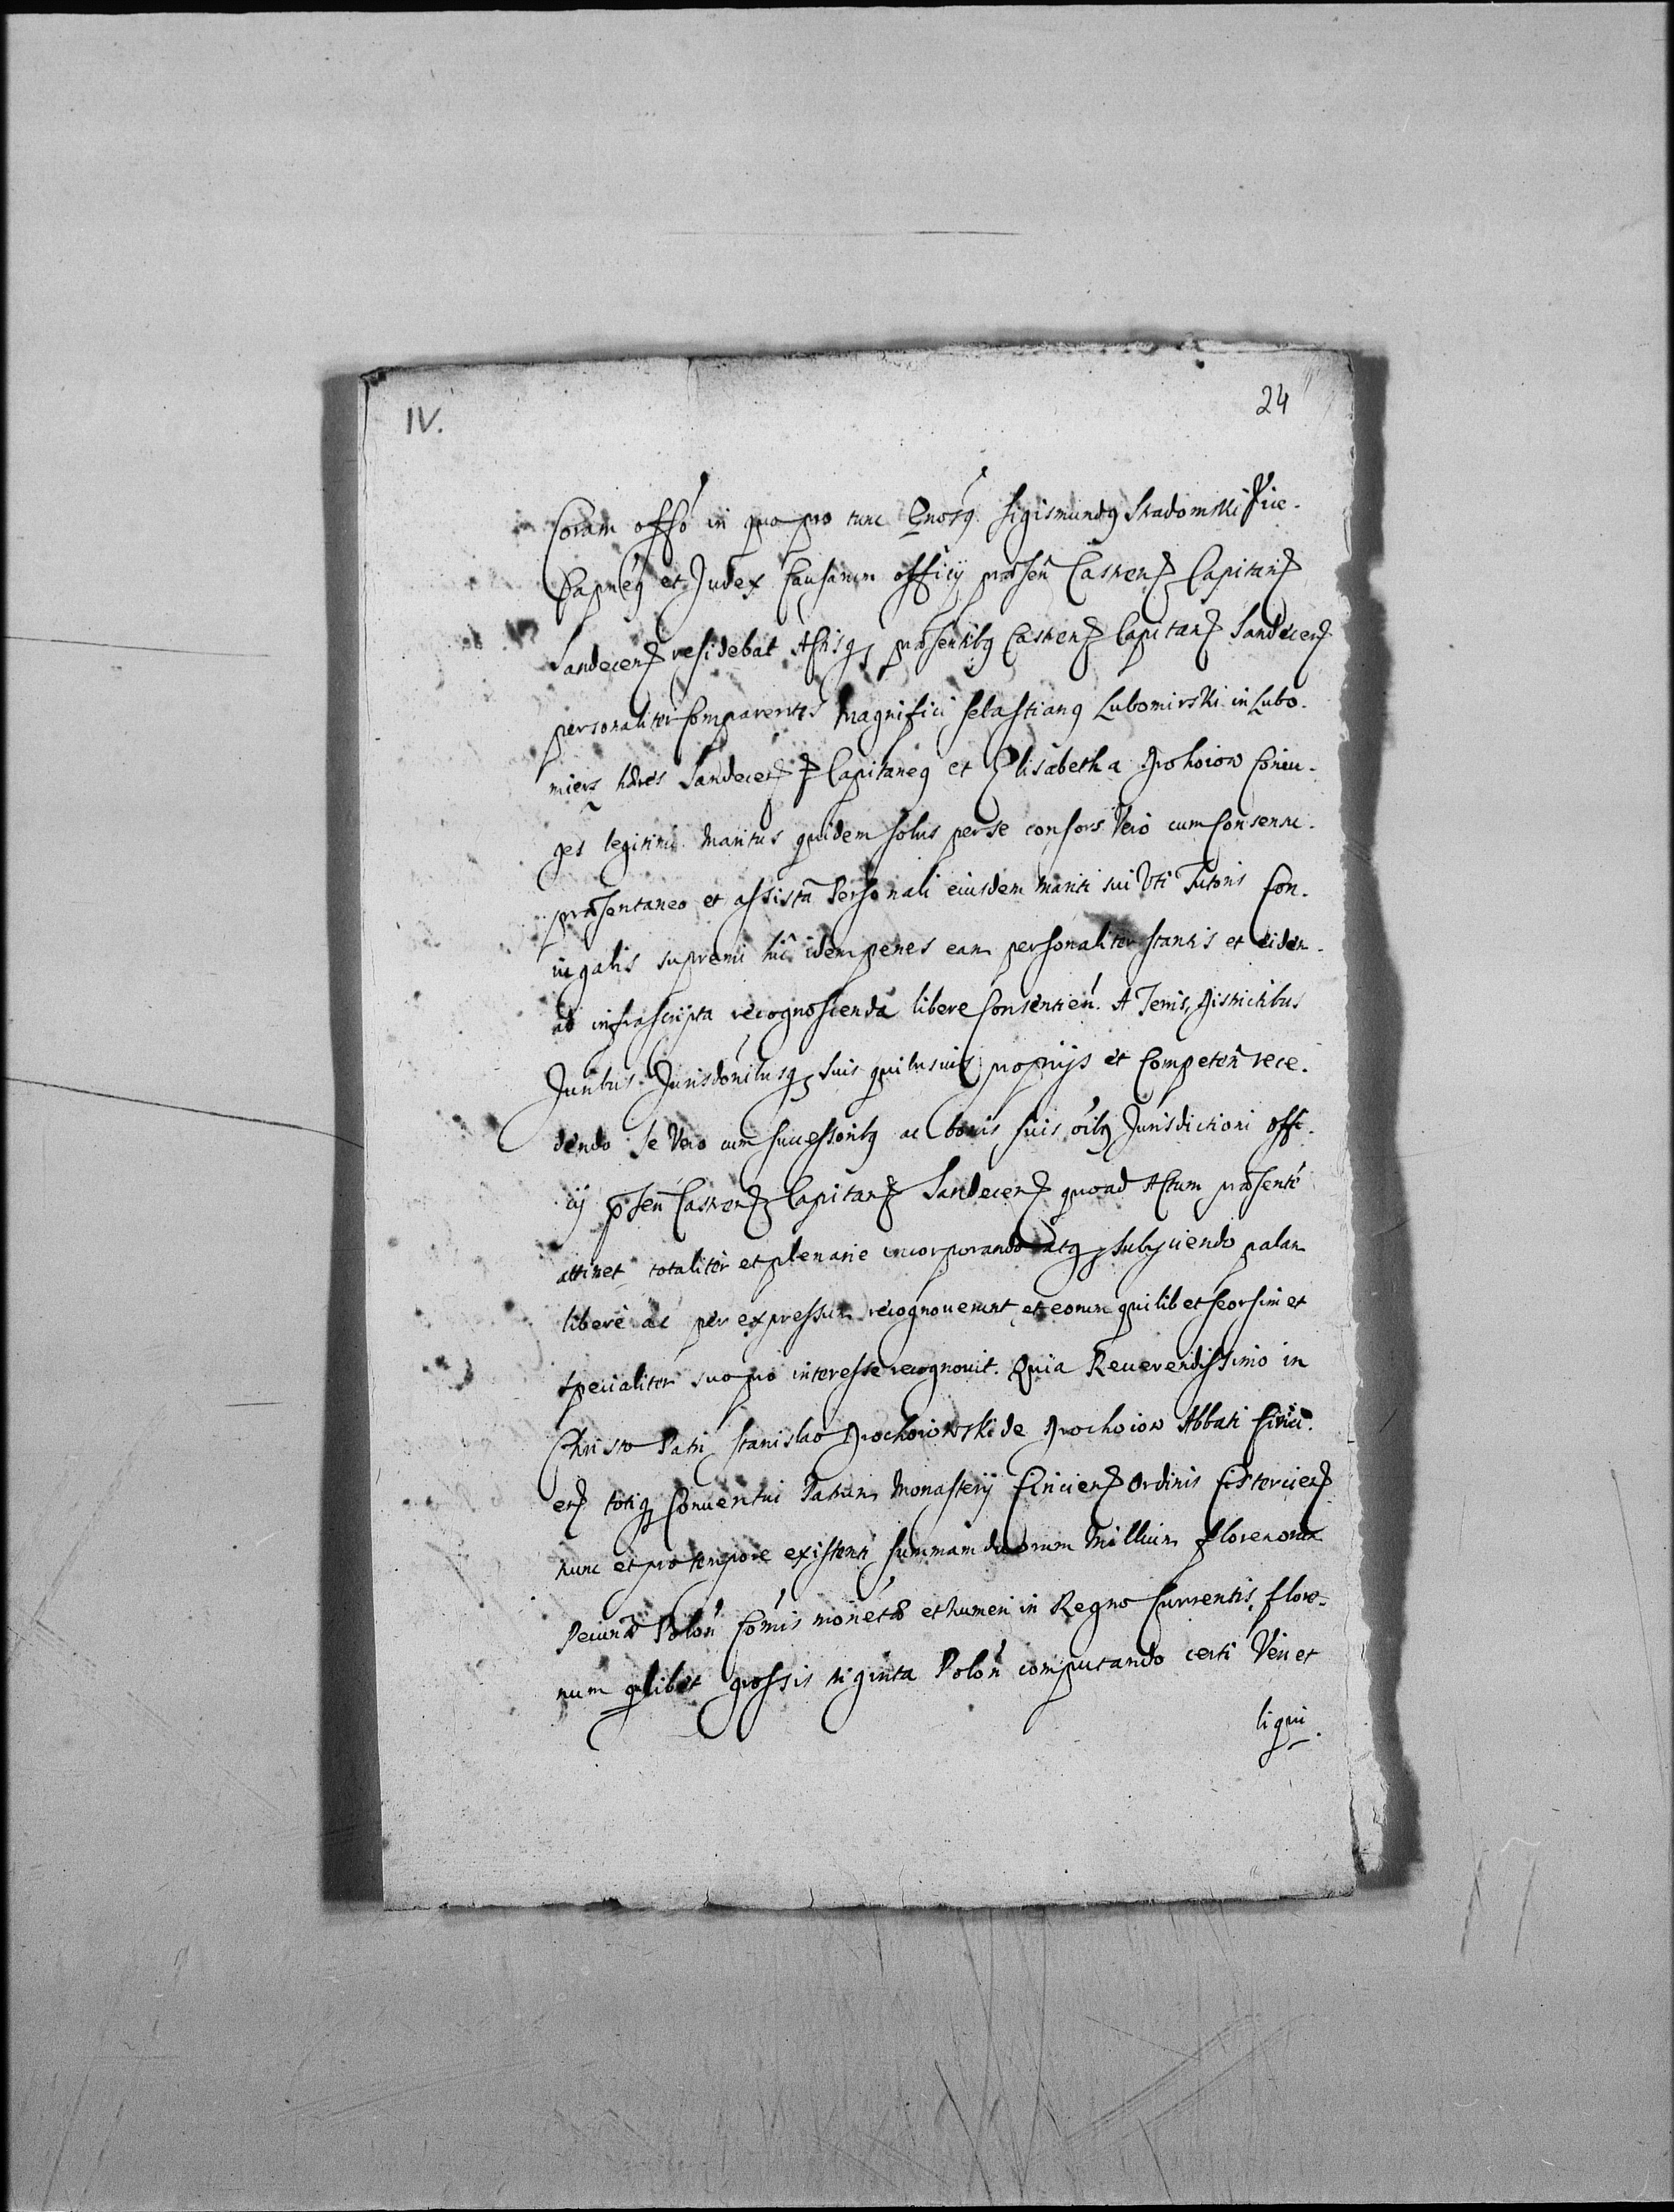 IV.
24
Coram offo in quo pro tunc Gnosq Sigismundq Stradomski Vice-
Capneq et Judex Causarum officij præsen Castren Capitan
Sandecen residebat Actisq præsentibq Castren Capitan Sandecen
personaliter Comparentes Magnifici Sebastianq Lubomirski in Lubo-
mierz hæres Sandecen Capitaneq et Elisabetha Drohoiow Coniu-
ges legitimi Maritus quidem solus per se consors Vero cum Consensu
præsentaneo et assista Personali eiusdem Mariti sui Vti Tutoris Con-
iugalis supremi hic idem penes eam personaliter stantis et eidem
ad infrascripta recognoscenda libere Consentien. A Terris, Districtibus
Juribus Jurisdonibusq suis quibusuis proprijs et Competen rece-
dendo Se Vero cum successoribq ac bonis suis oibq Jurisdictioni offi-
cij præsen Castren Capitan Sandecen quoad Actum præsente
attinet totaliter et plenarie incorporando atq subijciendo palam
libere ac per expressum recognouerunt et eorum quilibet seorsim et
specialiter suo pro interesse recognouit. Quia Reuerendissimo in
Christo Patri Stanislao Drochoiowski de Drochoiow Abbati Ciricien-
en totiq Conuentui Patrum Monasterij Ciricien Ordinis Cistercien
nunc et pro tempore existenti summam duorum Millium florenorum
Pecuniæ Polon Comis monetæ et numeri in Regno Currentis, flore-
num qlibet grossis triginta Polon computando certi Veri et
liqui